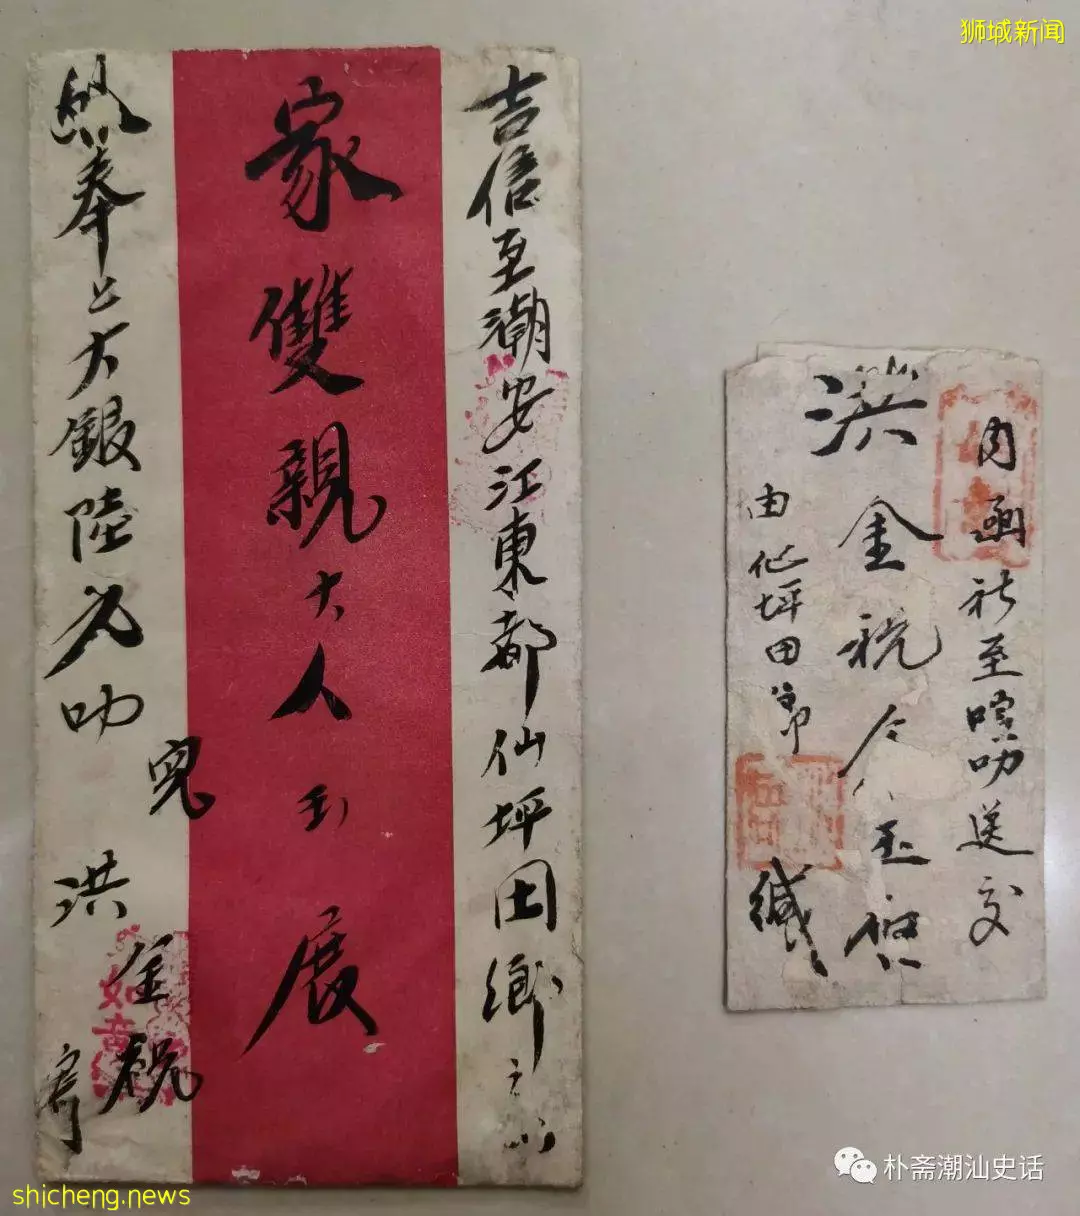 狮城新闻
吉信至潮安江東都仙坪田鄉之
家雙親大人玉展
奉上大銀陸元叻
兒洪金祝寄
内函社至叻送交
洪金祝令玉
由仙坪田鄉緘
朴斋潮汕史话
shicheng.news